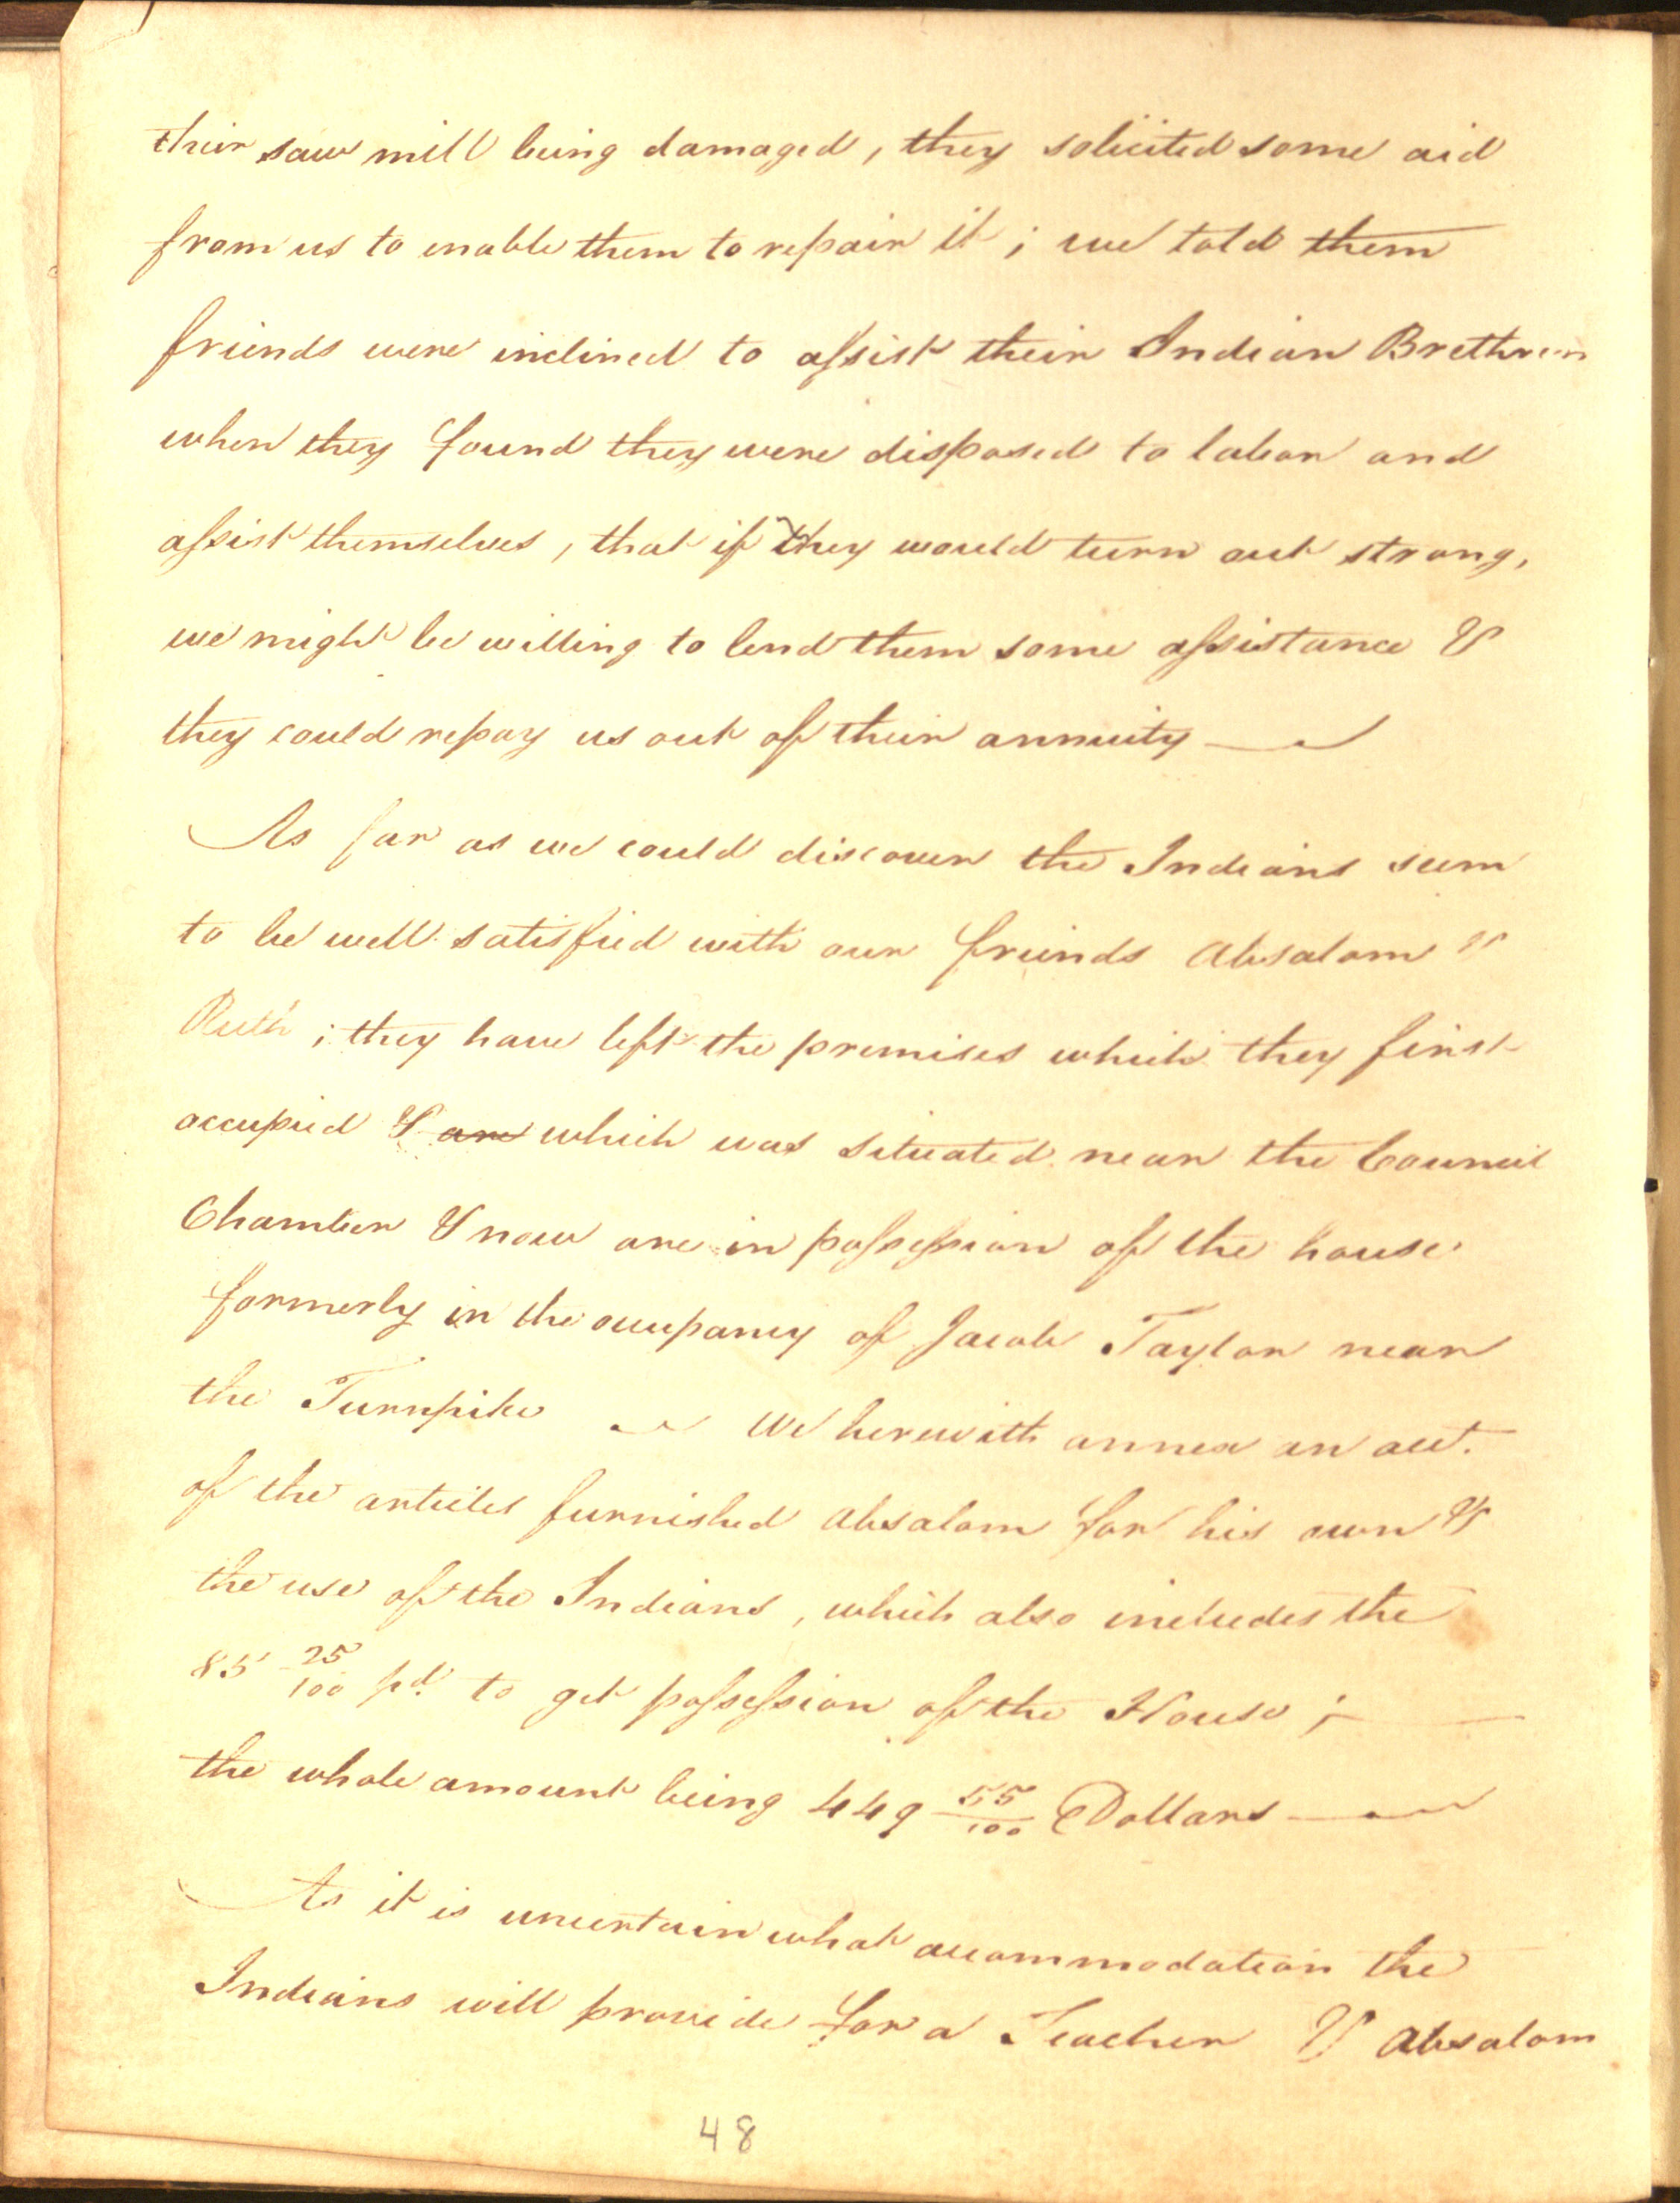 their saw mill being damaged, they solicited some aid
from us to enable them to repair it; we told them
friends were inclined to assist their Indian Brethren
when they found they were disposed to labor and
assist themselves, that if they would turn out strong,
we might be willing to lend them some assistance &
they could repay us out of their annuity —
As far as we could discover the Indians seem
to be well satisfied with our friends Absalom &
Ruth; they have left the premises which they first
occupied & are which was situated near the Council
Chamber & now are in possession of the house
formerly in the occupancy of Jacob Taylor near
the Turnpike — We herewith annex an acct.
of the articles furnished Absalom for his own &
the use of the Indians, which also includes the
85 25/100 pd. to get possession of the House; —
the whole amount being 449 55/100 Dollars —
As it is uncertain what accommodation the
Indians will provide for a Teacher & Absalom
48